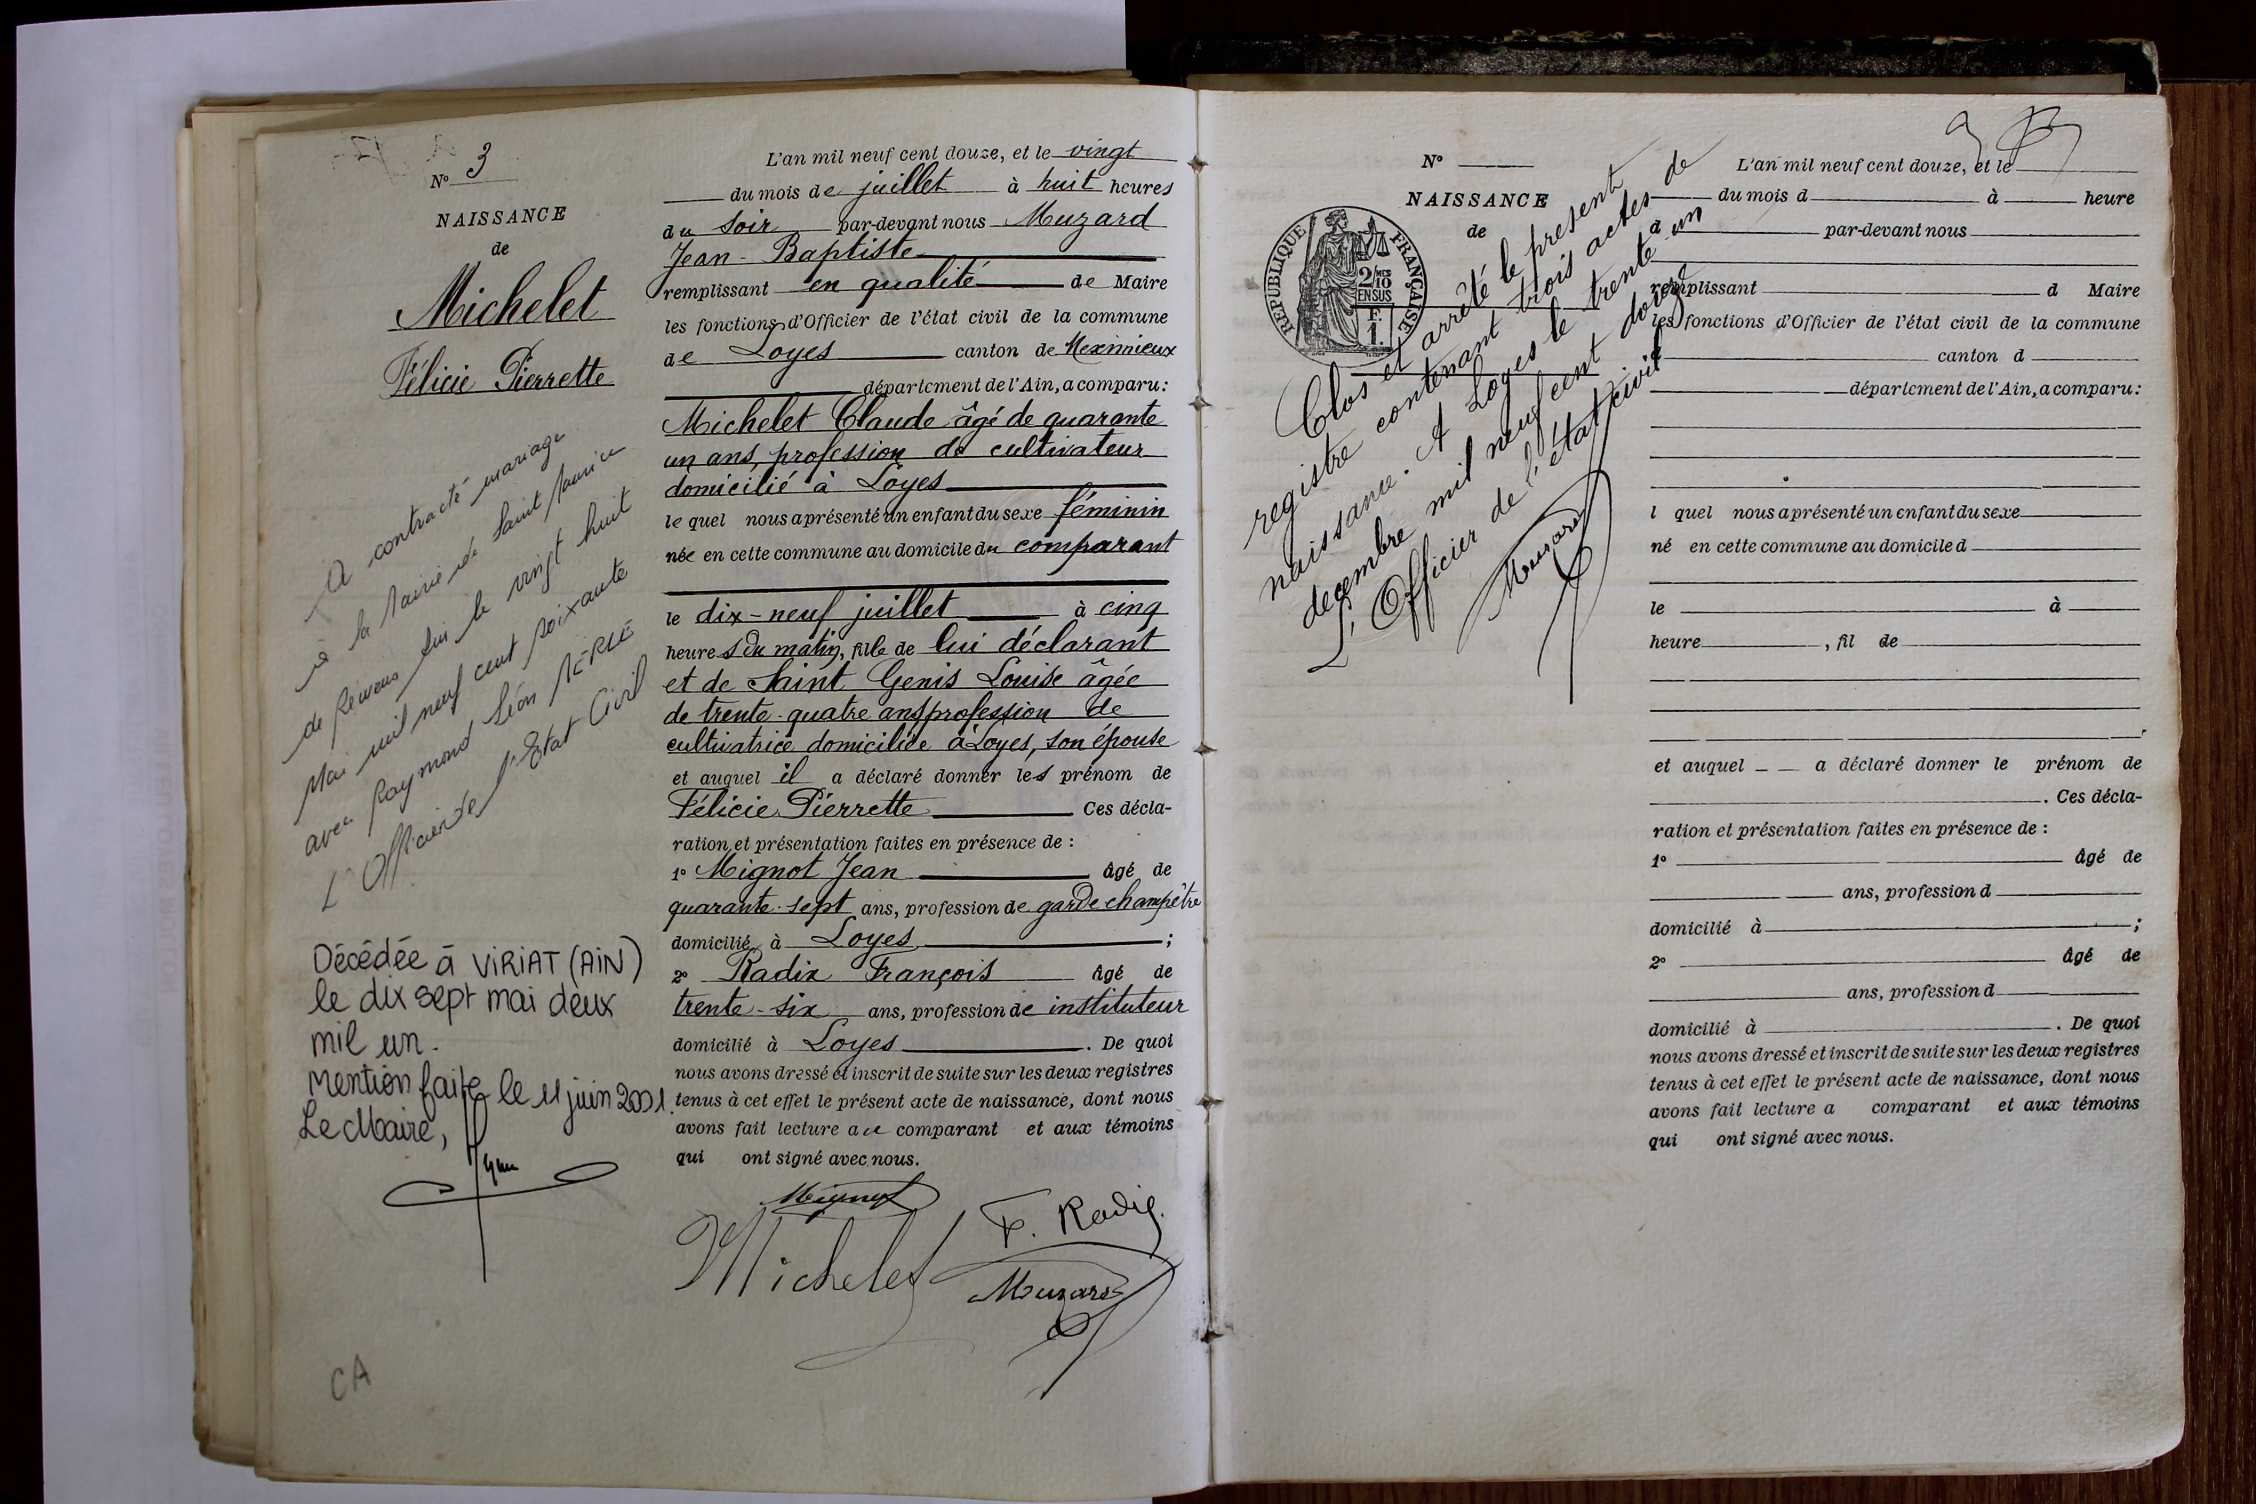 N° 3
NAISSANCE
de
Michelet
Félicie Pierrette
A contracté mariage
à la Mairie de Saint Maurice
de Rémens lui le vingt huit
Mai mil neuf cent soixante
avec Raymond Léon MERLE
L'Officier de l'Etat Civil
Décédée à VIRIAT (AIN)
le dix sept mai deux
mil un.
Mention faite le 11 juin 2001.
Le Maire,
CA
L'an mil neuf cent douze, et le vingt
du mois de juillet à huit heures
du soir par-devant nous Muzard
Jean-Baptiste
remplissant en qualité de Maire
les fonctions d'Officier de l'état civil de la commune
de Loyes canton de Meximieux
département de l'Ain, a comparu:
Michelet Claude âgé de quarante
un ans, profession de cultivateur
domicilié à Loyes
le quel nous a présenté un enfant du sexe féminin
née en cette commune au domicile du comparant
le dix-neuf juillet à cinq
heures du matin, fille de lui déclarant
et de Saint Genis Louise âgée
de trente-quatre ans profession de
cultivatrice domiciliée à Loyes, son épouse
et auquel il a déclaré donner les prénom de
Félicie Pierrette Ces décla-
ration et présentation faites en présence de :
1° Mignot Jean âgé de
quarante-sept ans, profession de garde champêtre
domicilié à Loyes ;
2° Radix François âgé de
trente-six ans, profession de instituteur
domicilié à Loyes . De quoi
nous avons dressé et inscrit de suite sur les deux registres
tenus à cet effet le présent acte de naissance, dont nous
avons fait lecture au comparant et aux témoins
qui ont signé avec nous.
Mignot
Michelet F. Radix
Muzard
N°
NAISSANCE
de
RÉPUBLIQUE FRANÇAISE
2/10 MES
EN SUS
1 F.
Clos et arrêté le présent
registre contenant trois actes de
naissance. A Loyes le trente un
decembre mil neuf cent douze
L'Officier de l'état civil
Muzard
L'an mil neuf cent douze, et le
du mois d à heure
d par-devant nous
remplissant d Maire
les fonctions d'Officier de l'état civil de la commune
d canton d
département de l'Ain, a comparu:
l quel nous a présenté un enfant du sexe
né en cette commune au domicile d
le à
heure , fil de
et auquel a déclaré donner le prénom de
. Ces décla-
ration et présentation faites en présence de :
1° âgé de
ans, profession d
domicilié à ;
2° âgé de
ans, profession d
domicilié à . De quoi
nous avons dressé et inscrit de suite sur les deux registres
tenus à cet effet le présent acte de naissance, dont nous
avons fait lecture a comparant et aux témoins
qui ont signé avec nous.